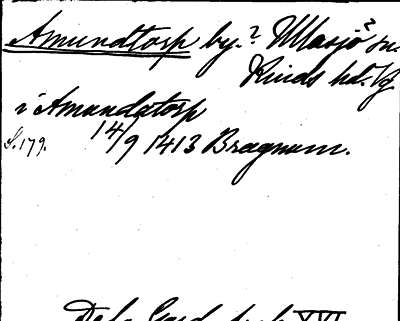 Amundtorp by.? Ullasjö? sn.
Kinds hd. Vg
i Amundatorp
S. 179. 14/9 1413 Brægnum.